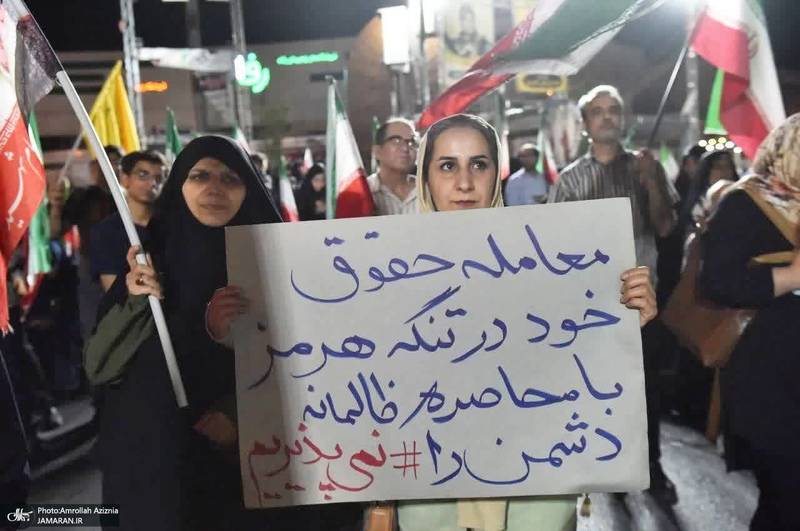 معامله حقوق
خود در تنگه هرمز
با محاصره ظالمانه
دشمن را #نمی‌پذیریم
رفاه
Photo:Amrollah Aziznia
JAMARAN.IR